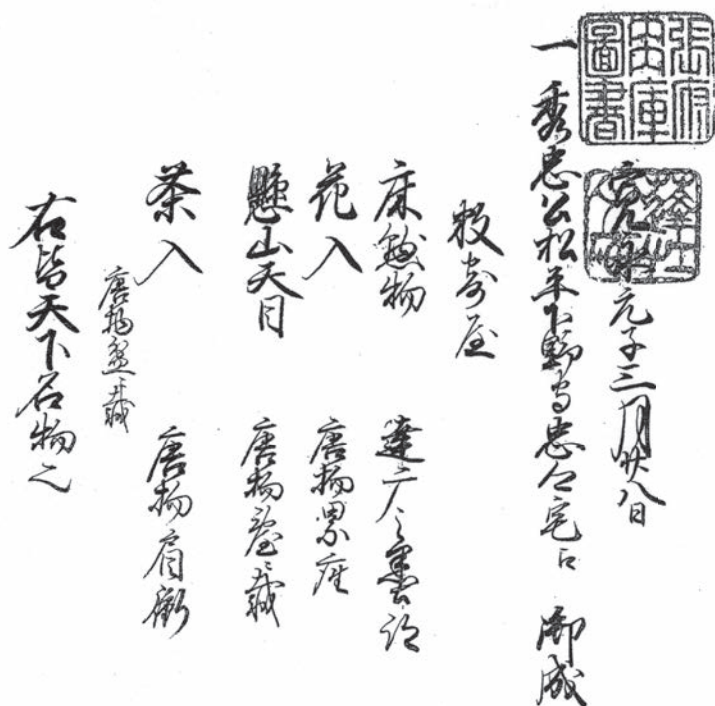 張府
内庫
圖書
寛永元子三月廿八日
一 秀忠公松平下野守忠郷宅江 御成
数寄屋
床懸物 墨跡
花入 唐物累座
懸山天目 唐物臺ニ載
茶入 唐物肩衝
唐物盆ニ載
右皆天下名物也